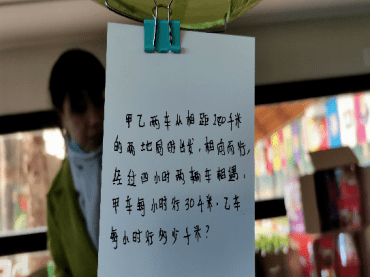 甲乙两车从相距千米
的两地同时出发,相向而行,
经过四小时两辆车相遇,
甲车每小时行30千米,乙车
每小时行多少千米?